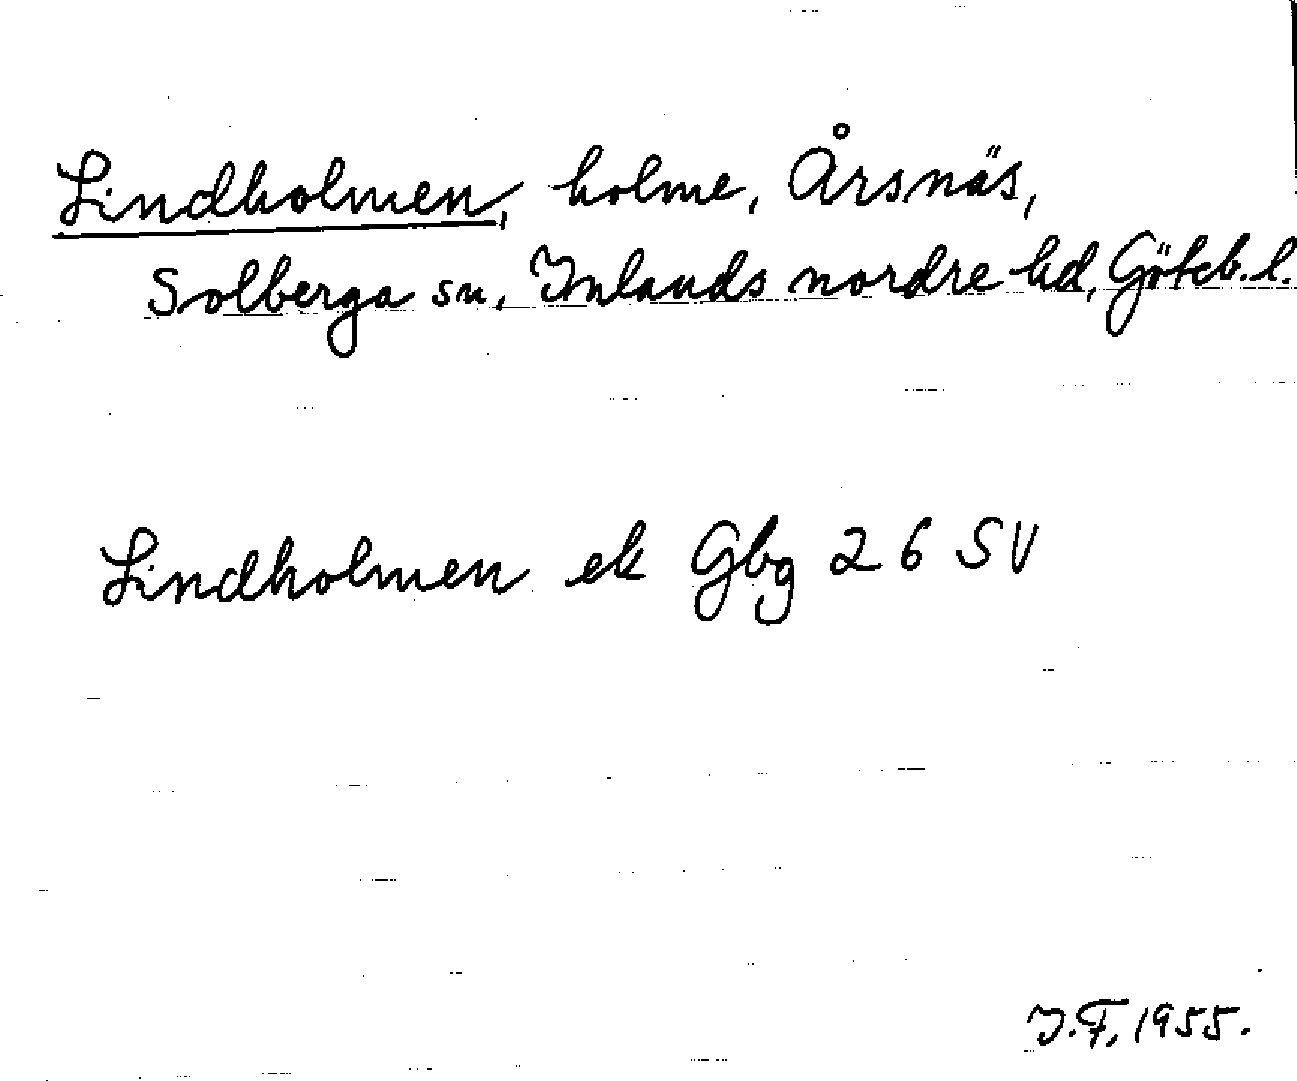 Lindholmen, holme, Årsnäs,
Solberga sn, Inlands nordre hd, Göteb. l.
Lindholmen ek Gbg 26 SV
I.F. 1955.